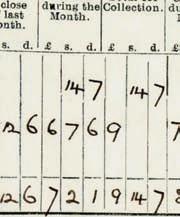 close during the Collection.
last Month.
Month.
s. d. £ s. d. £ s. d. £
14 7 14 7
12 6 6 7 6 9
12 6 7 2 1 9 14 7